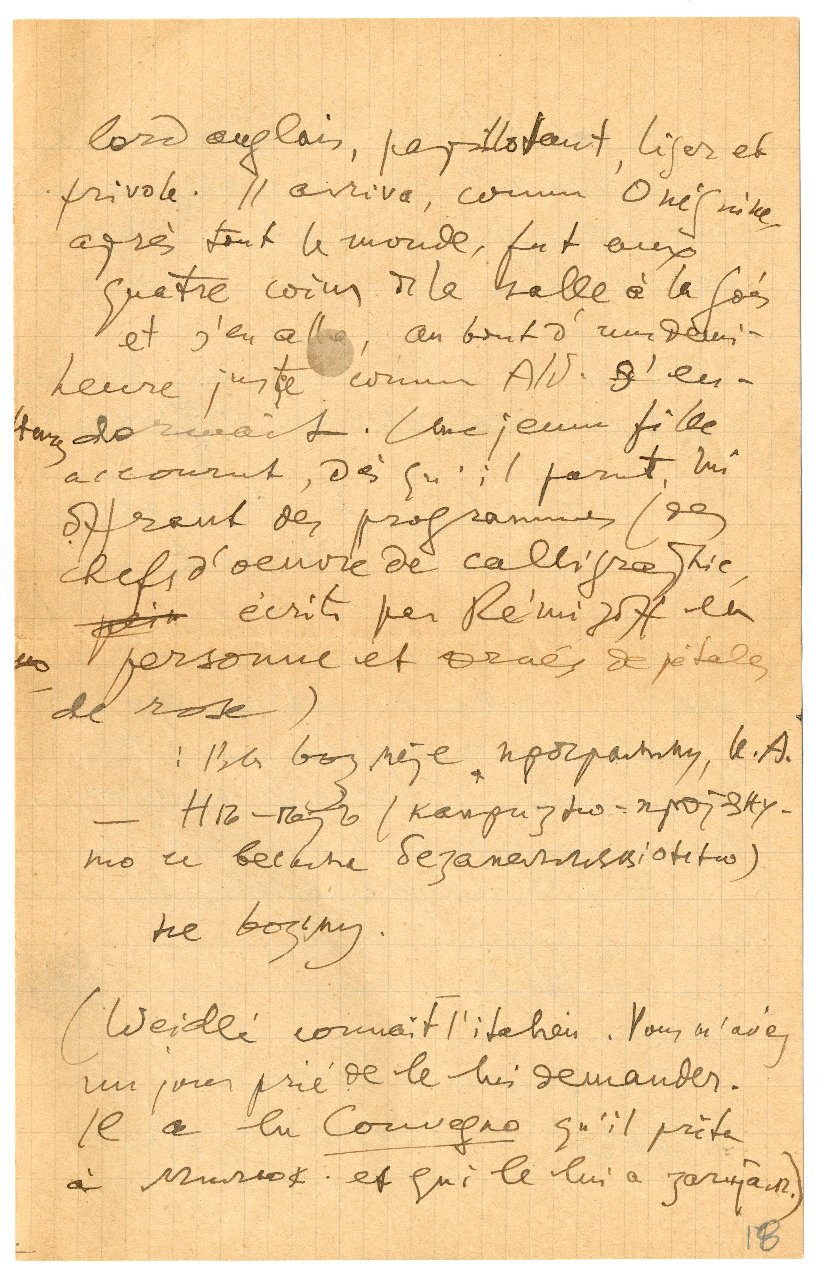 lord anglais, papillotant, léger et
frivole. Il arriva, comme Onéguine,
après tout le monde, fut aux
quatre coins de la salle à la fois
et s'en alla, au bout d'une demi-
heure juste comme Ald. s'en-
dormait. Une jeune fille
accourut, dès qu'il parut, lui
offrant des programmes (des
chefs d'oeuvre de calligraphie,
écrits par Rémizoff en
personne et ornés de pétales
de rose)
: Вы возьмете программу, К. А.
— Нѣ-ѣтъ (капризно-
но и весьма безапелляціонно)
не возьму.
(Weidlé connaît l'italien. Vous m'avez
un jour prié de le lui demander.
Il a lu Convegno qu'il prêta
à et qui le lui a зачиталъ.)
18